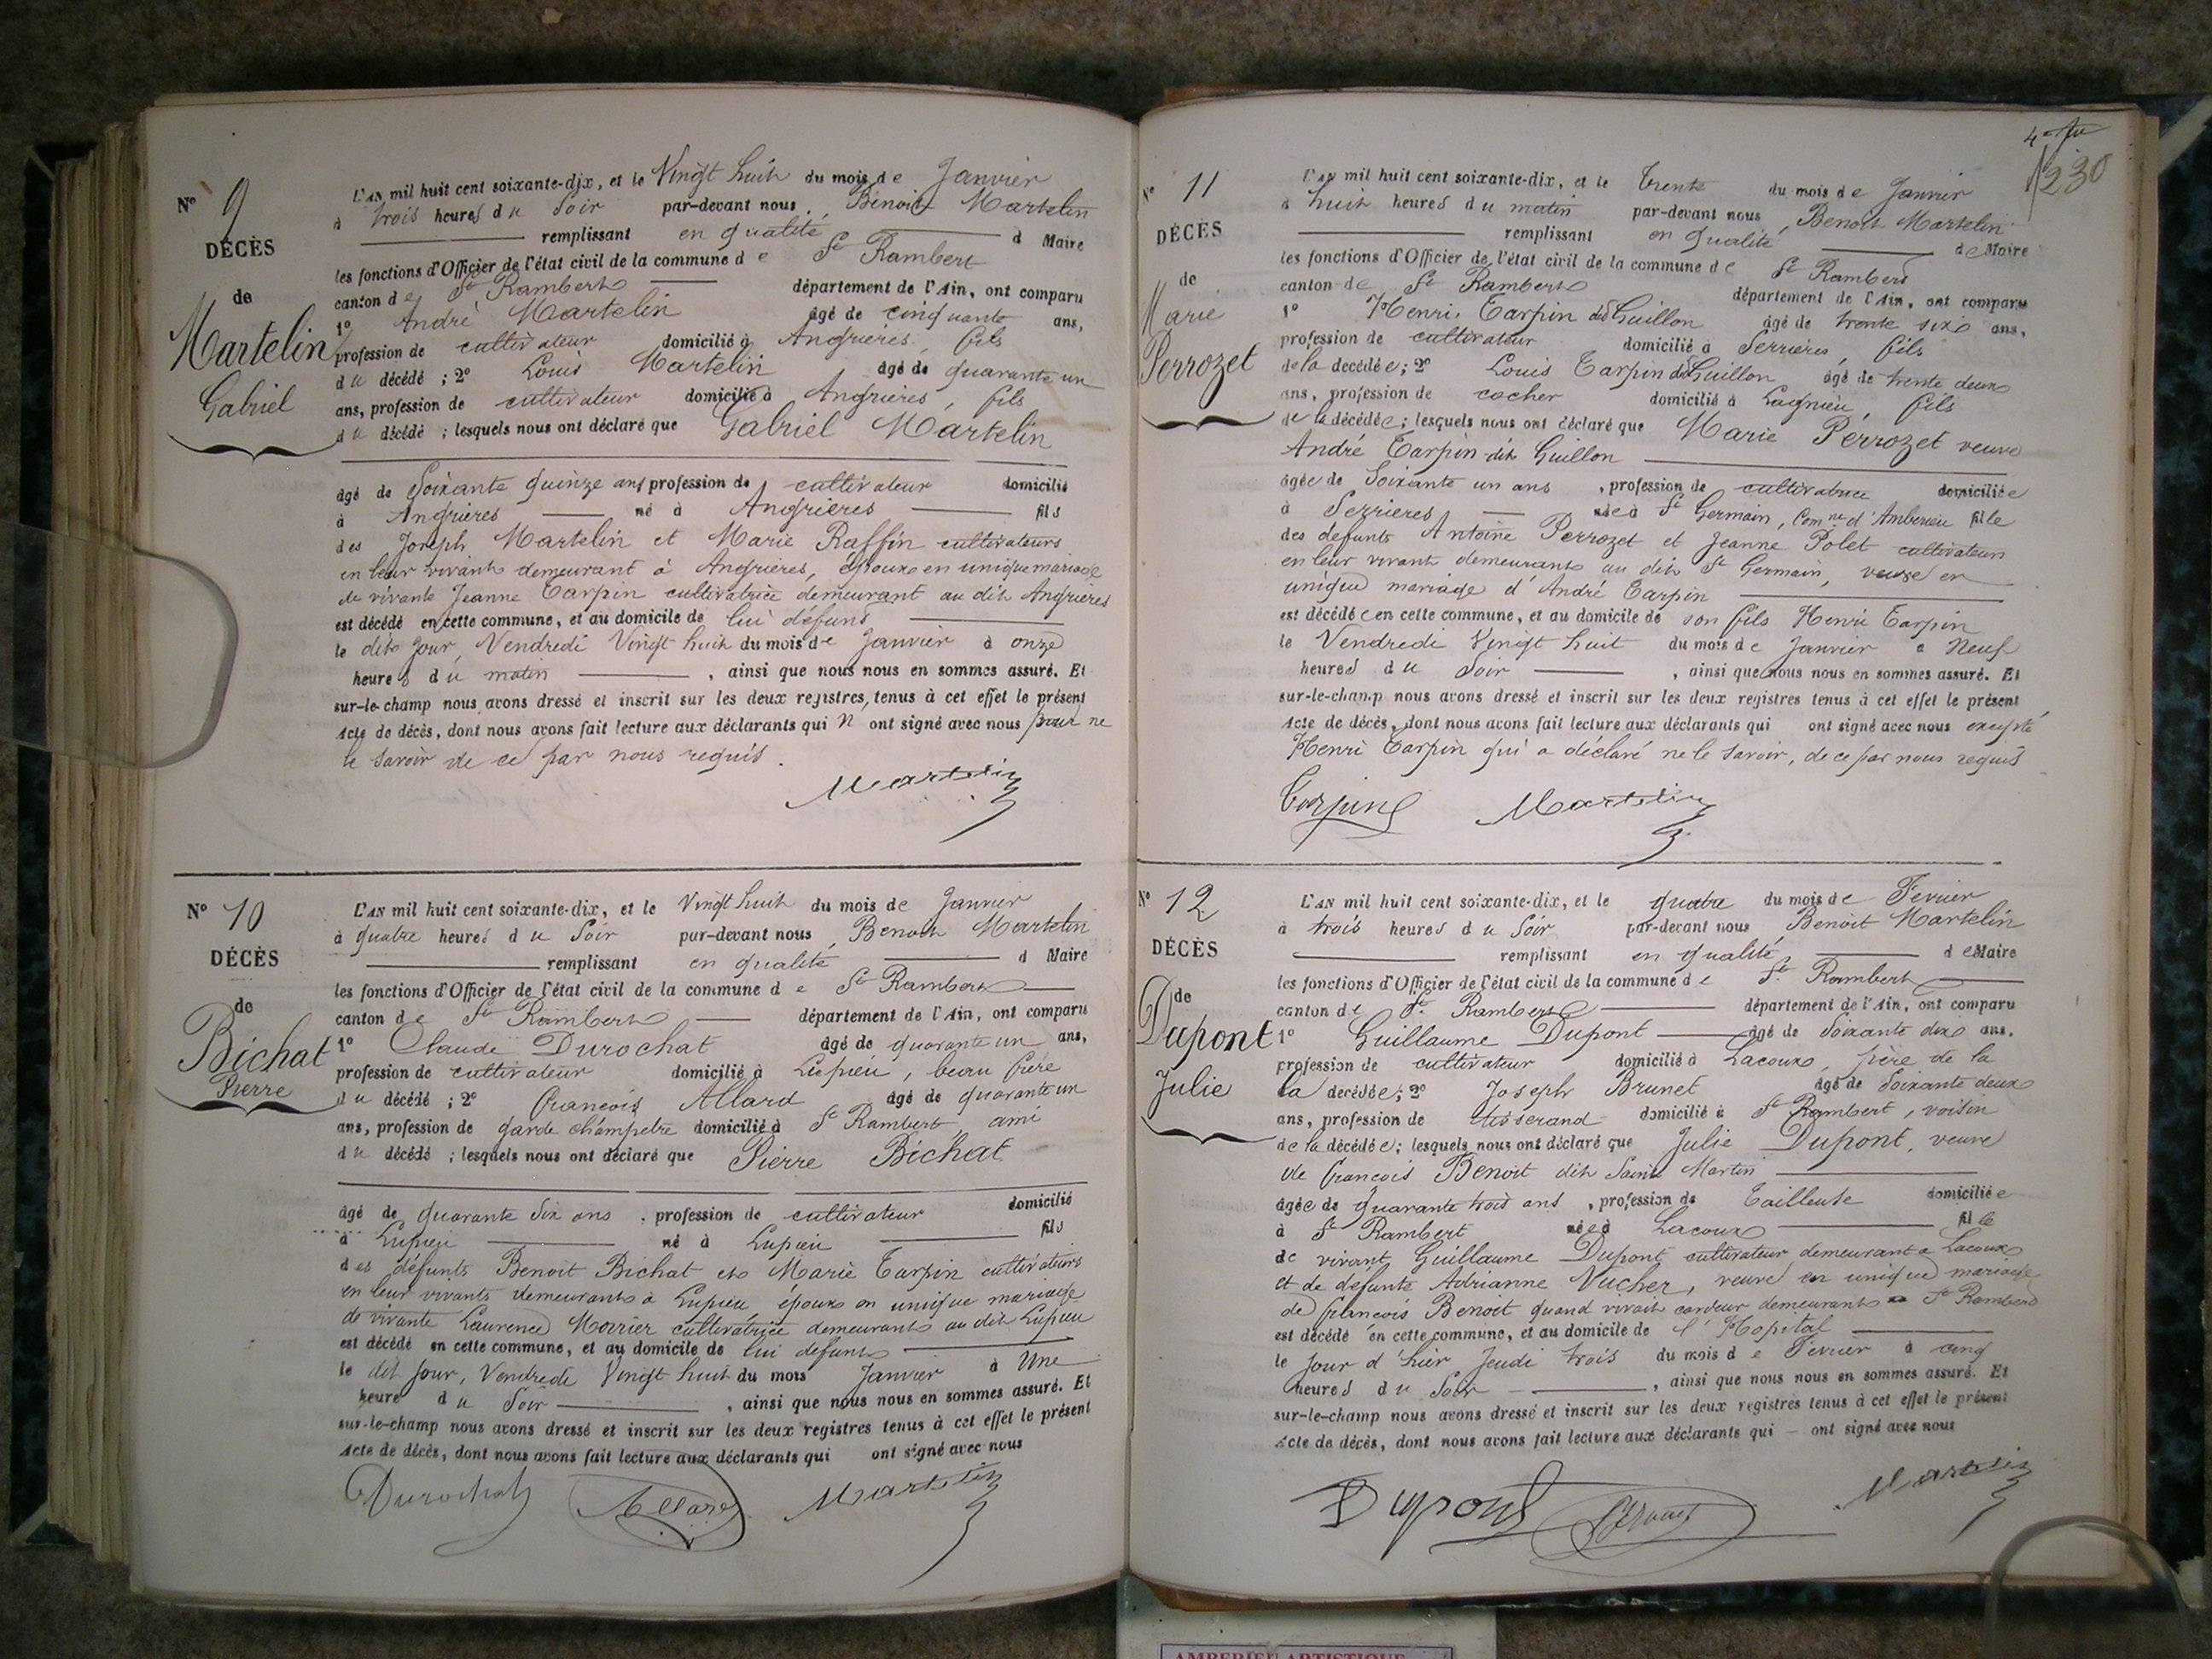 N° 9
DÉCÈS
de
Martelin
Gabriel
L'AN mil huit cent soixante-dix, et le Vingt huit du mois de Janvier
à trois heures du Soir par-devant nous, Benoit Martelin
remplissant en qualité d Maire
les fonctions d'Officier de l'état civil de la commune de St Rambert
canton de St Rambert département de l'Ain, ont comparu
1° André Martelin âgé de cinquante ans,
profession de cultivateur domicilié à Angrières, fils
du décédé ; 2° Louis Martelin âgé de quarante un
ans, profession de cultivateur domicilié à Angrières, fils
du décédé ; lesquels nous ont déclaré que Gabriel Martelin
âgé de Soixante quinze ans profession de cultivateur domicilié
à Angrières né à Angrières fils
des Joseph Martelin et Marie Raffin cultivateurs
en leur vivant demeurant à Angrières, époux en unique mariage
de vivante Jeanne Tarpin cultivatrice demeurant au dit Angrières
est décédé en cette commune, et au domicile de lui défunt
le dit jour, Vendredi Vingt huit du mois de Janvier à onze
heures du matin, ainsi que nous nous en sommes assuré. Et
sur-le-champ nous avons dressé et inscrit sur les deux registres, tenus à cet effet le présent
acte de décès, dont nous avons fait lecture aux déclarants qui n ont signé avec nous pour ne
le savoir de ce par nous requis.
Martelin
N° 10
DÉCÈS
de
Bichat
Pierre
L'AN mil huit cent soixante-dix, et le Vingt huit du mois de Janvier
à quatre heures du Soir par-devant nous, Benoit Martelin
remplissant en qualité d Maire
les fonctions d'Officier de l'état civil de la commune de St Rambert
canton de St Rambert département de l'Ain, ont comparu
1° Claude Durochat âgé de quarante un ans,
profession de cultivateur domicilié à Lupieu, beau frère
du décédé ; 2° François Allard âgé de quarante un
ans, profession de garde champetre domicilié à St Rambert, ami
du décédé ; lesquels nous ont déclaré que Pierre Bichat
âgé de quarante six ans, profession de cultivateur domicilié
à Lupieu né à Lupieu fils
des défunts Benoit Bichat et Marie Tarpin cultivateurs
en leur vivants demeurants à Lupieu, époux en unique mariage
de vivante Laurence Morrier cultivatrice demeurants au dit Lupieu
est décédé en cette commune, et au domicile de lui defunt
le dit jour, Vendredi Vingt huit du mois Janvier à Une
heure du Soir, ainsi que nous nous en sommes assuré. Et
sur-le-champ nous avons dressé et inscrit sur les deux registres tenus à cet effet le présent
acte de décès, dont nous avons fait lecture aux déclarants qui ont signé avec nous
Durochat Allard Martelin
4
230
N° 11
DÉCÈS
de
Marie
Perrozet
L'AN mil huit cent soixante-dix, et le trente du mois de Janvier
à huit heures du matin par-devant nous, Benoit Martelin
remplissant en qualité de Maire
les fonctions d'Officier de l'état civil de la commune de St Rambert
canton de St Rambert département de l'Ain, ont comparu
1° Henri Tarpin dit Guillon âgé de trente six ans,
profession de cultivateur domicilié à Serrières, fils
de la decédée ; 2° Louis Tarpin dit Guillon âgé de trente deux
ans, profession de cocher domicilié à Lagnieu, fils
de la décédée ; lesquels nous ont déclaré que Marie Perrozet veuve
André Tarpin dit Guillon
âgée de Soixante un ans, profession de cultivatrice domiciliée
à Serrieres née à St Germain, Comne d'Amberieu fille
des defunts Antoine Perrozet et Jeanne Polet cultivateurs
en leur vivant demeurants au dit St Germain, veuve en
unique mariage d'André Tarpin
est décédée en cette commune, et au domicile de son fils Henri Tarpin
le Vendredi Vingt huit du mois de Janvier à Neuf
heures du Soir, ainsi que nous nous en sommes assuré. Et
sur-le-champ nous avons dressé et inscrit sur les deux registres tenus à cet effet le présent
acte de décès, dont nous avons fait lecture aux déclarants qui ont signé avec nous excepté
Henri Tarpin qui a déclaré ne le savoir, de ce par nous requis
Tarpin Martelin
N° 12
DÉCÈS
de
Dupont
Julie
L'AN mil huit cent soixante-dix, et le quatre du mois de Fevrier
à trois heures du Soir par-devant nous, Benoit Martelin
remplissant en qualité de Maire
les fonctions d'Officier de l'état civil de la commune de St Rambert
canton de St Rambert département de l'Ain, ont comparu
1° Guillaume Dupont âgé de Soixante dix ans.
profession de cultivateur domicilié à Lacoux, père de la
la decédée ; 2° Joseph Brunet âgé de Soixante deux
ans, profession de tisserand domicilié à St Rambert, voisin
de la décédée ; lesquels nous ont déclaré que Julie Dupont, veuve
de François Benoit dit Saint Martin
âgée de quarante trois ans, profession de Tailleuse domiciliée
à St Rambert née à Lacoux fille
de vivant Guillaume Dupont cultivateur demeurant à Lacoux
et de défunte Adrianne Nucher, veuve en unique mariage
de françois Benoit quand vivait cardeur demeurant à St Rambert
est décédé en cette commune, et au domicile de l'Hopital
le jour d'hier Jeudi trois du mois de Fevrier à cinq
heures du Soir, ainsi que nous nous en sommes assuré. Et
sur-le-champ nous avons dressé et inscrit sur les deux registres tenus à cet effet le présent
acte de décès, dont nous avons fait lecture aux déclarants qui ont signé avec nous
Dupont Brunet Martelin
AMBERIEU ARTISTIQUE